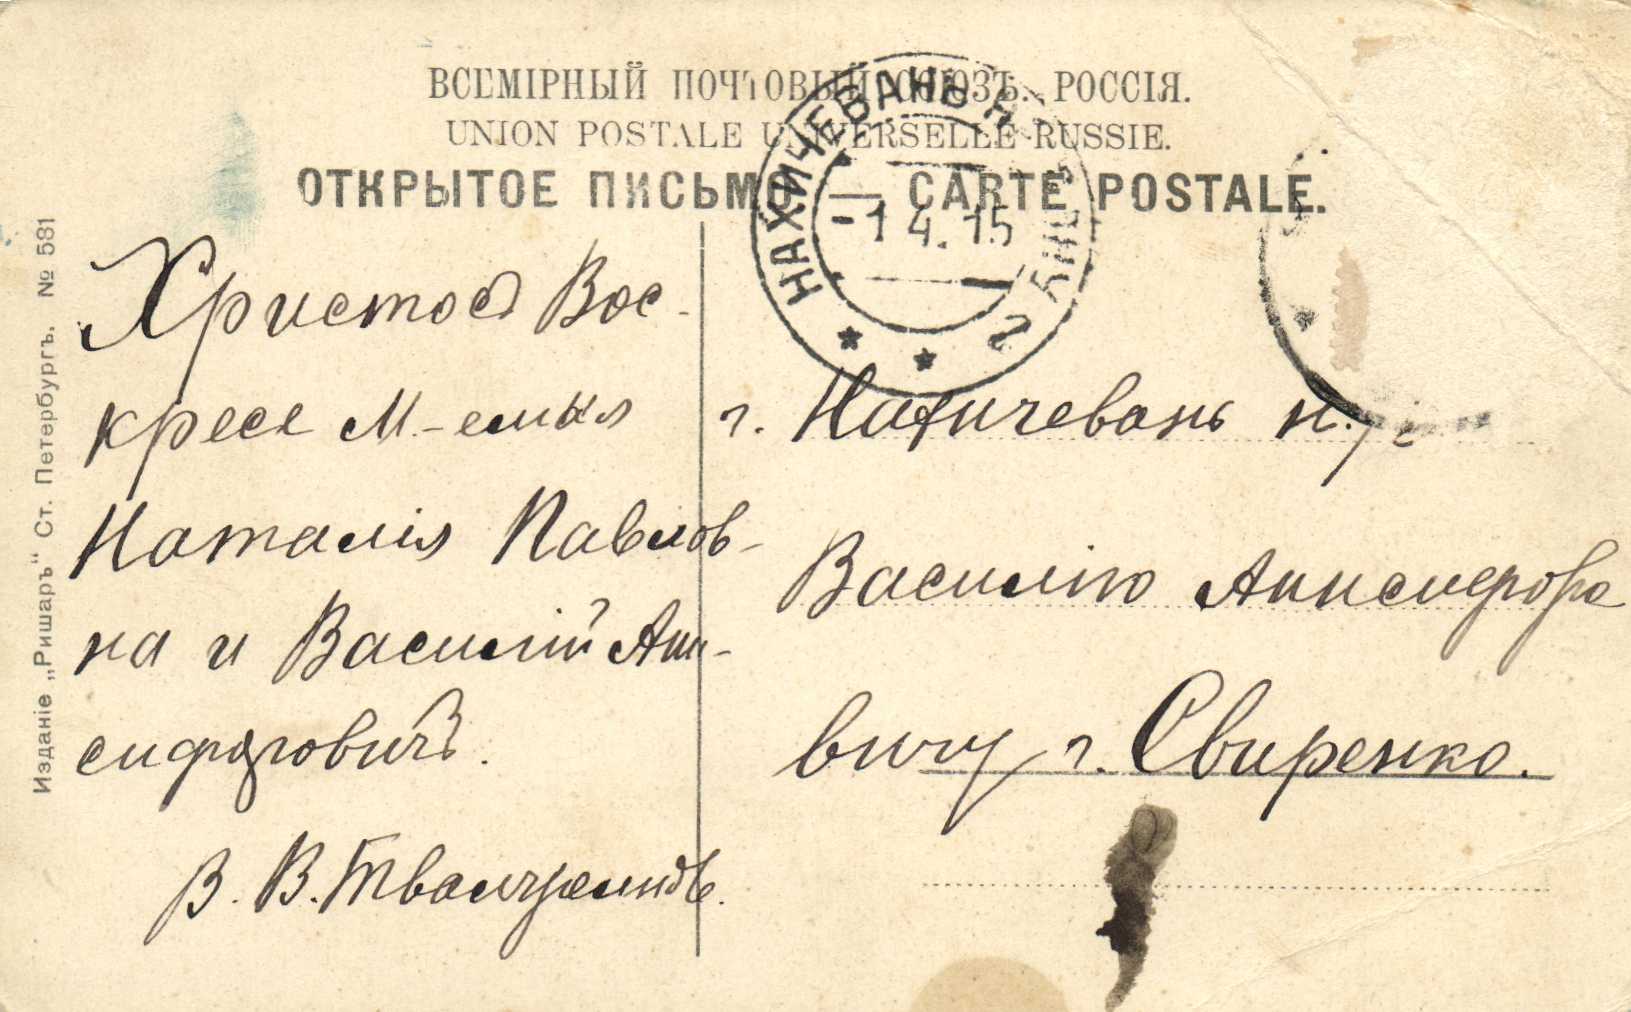 ВСЕМІРНЫЙ ПОЧТОВЫЙ СОЮЗЪ. РОССІЯ.
UNION POSTALE UNIVERSELLE RUSSIE.
ОТКРЫТОЕ ПИСЬМО — CARTE POSTALE.
НАХИЧЕВАНЬ
-1 4. 15
2
Изданіе „Ришаръ“ Ст. Петербургъ. № 581
Христосъ Вос-
кресе
Наталія Павлов-
на и Василій Ани-
сифоровичъ.
В. В.
г. Нахичевань н./
Василію Анисифоро
вичу г. Свиренко.